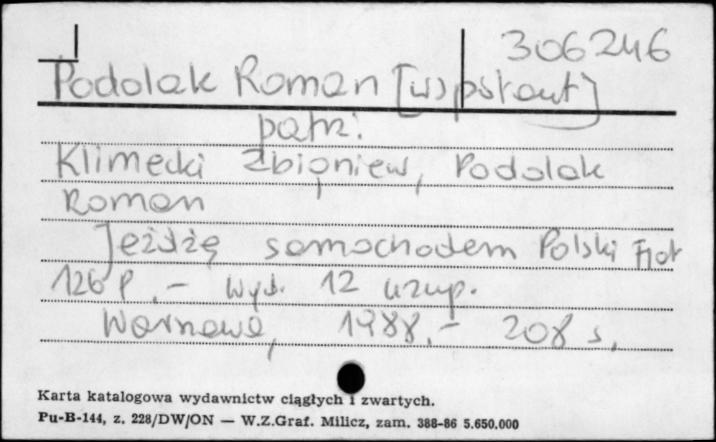 306246
Podolak Roman [współaut]
patrz:
Klimecki Zbigniew, Podolak
Roman
Jeżdżę samochodem Polski Fiat
126 P. - wyd. 12 uzup.
Warszawa, 1988. - 208 s.
Karta katalogowa wydawnictw ciągłych i zwartych.
Pu-B-144, z. 228/DW/ON — W.Z.Graf. Milicz, zam. 388-86 5.650.000